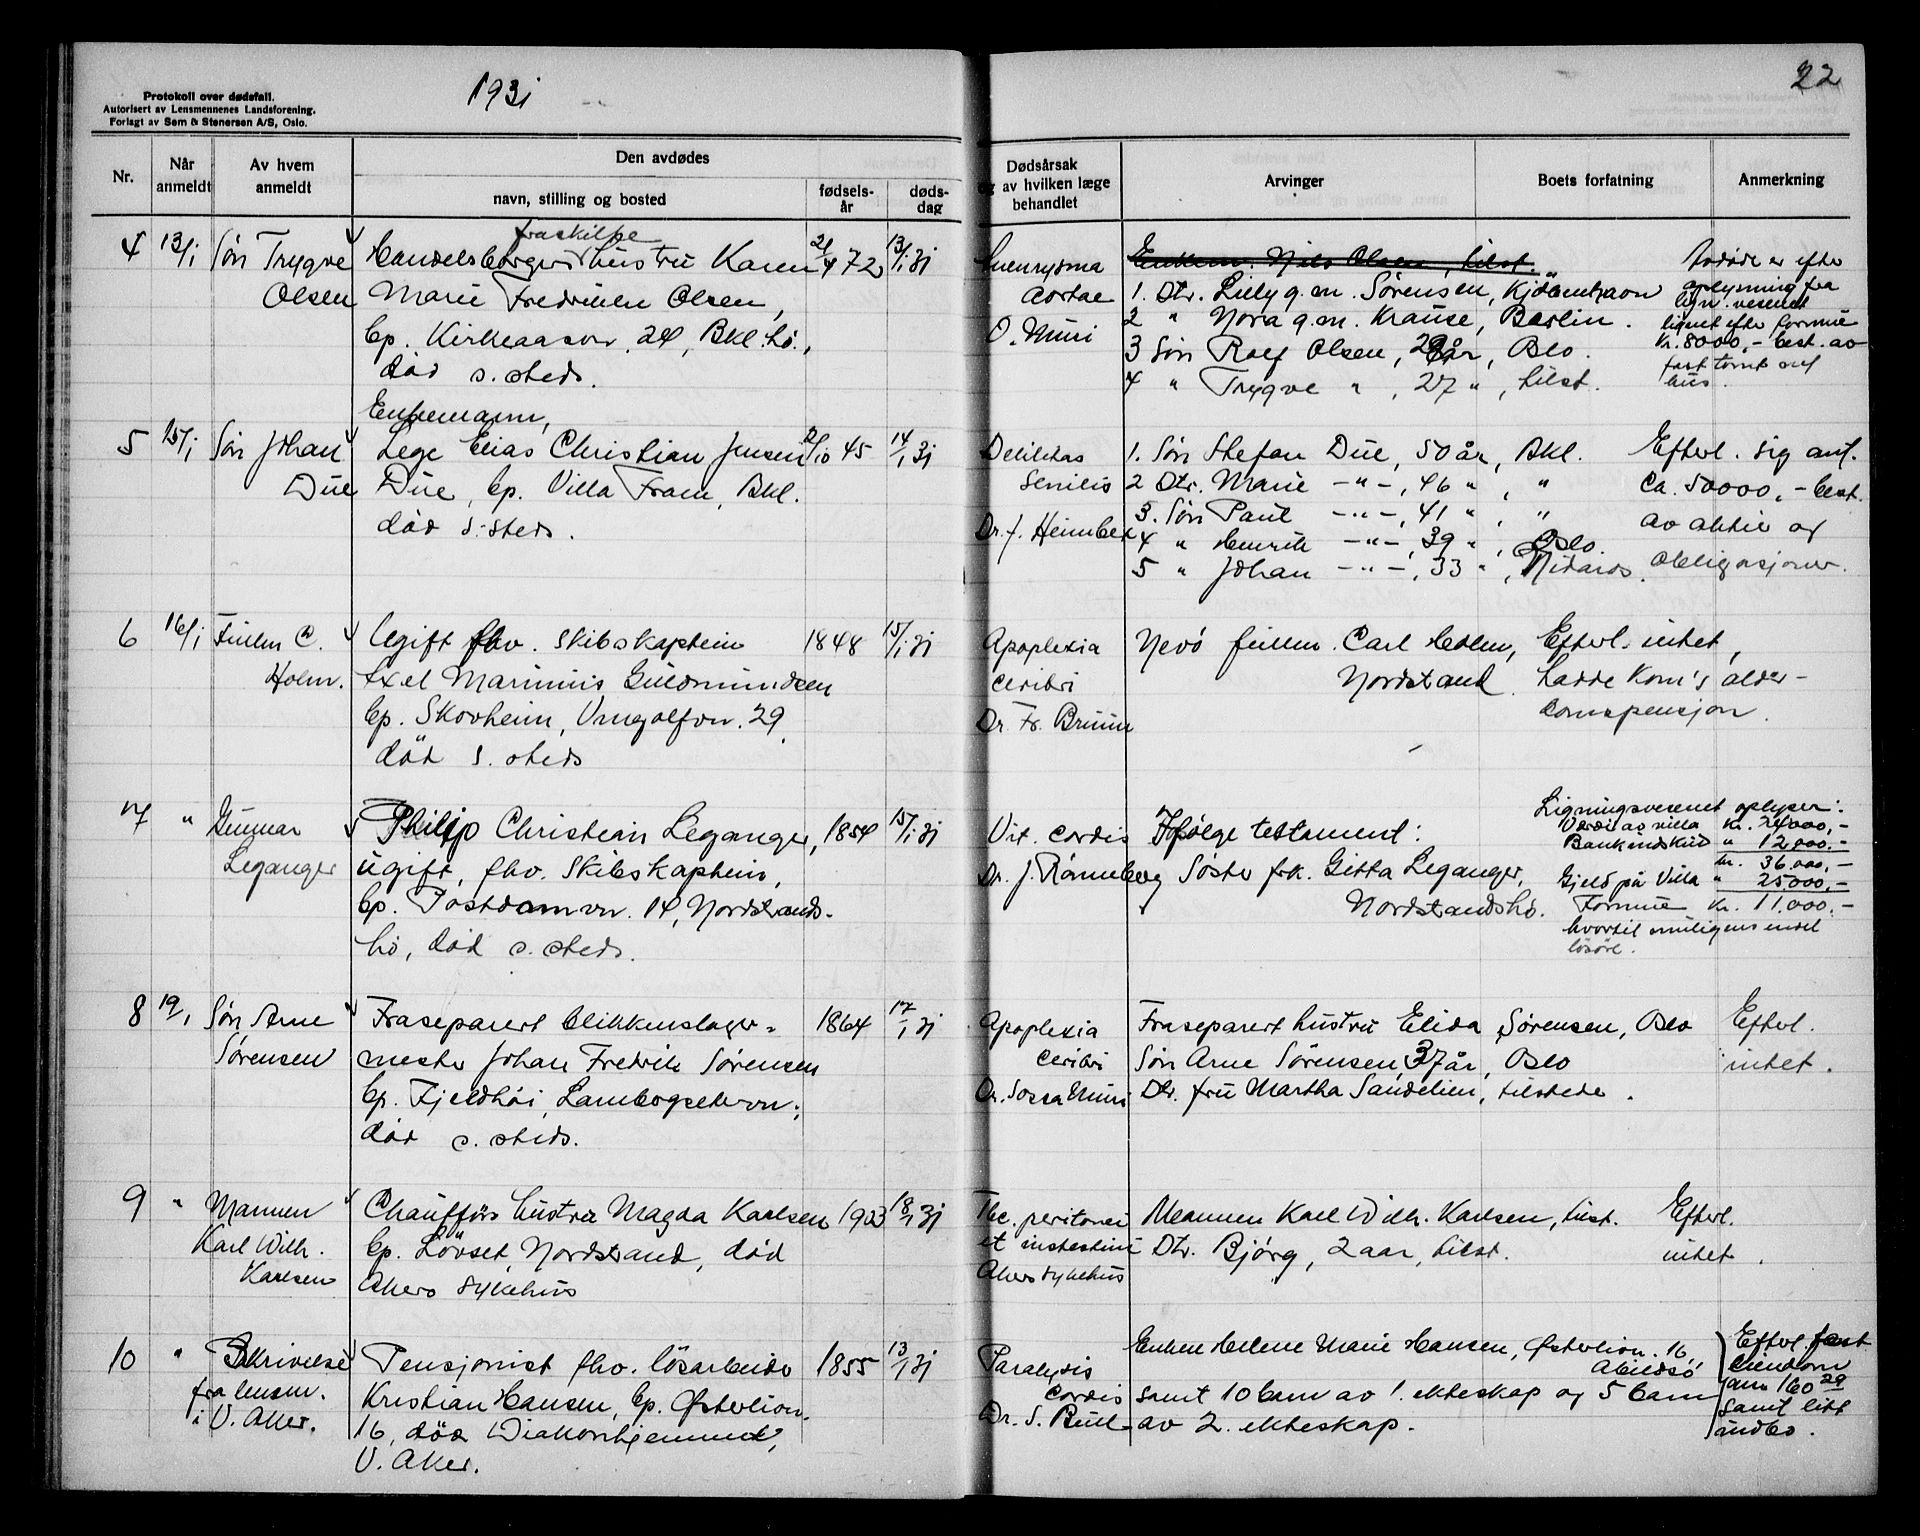 Protokoll over dødsfall.
Autorisert av Lensmennenes Landsforening.
Forlagt av Sem & Stenersen A/S, Oslo.
1931
22
Nr.
Når anmeldt
Av hvem anmeldt
Den avdødes
navn, stilling og bosted
fødsels-år
døds-dag
Dødsårsak og av hvilken læge behandlet
Arvinger
Boets forfatning
Anmerkning
4 13/1 Søn Trygve Olsen
fraskilte
Handelsborgers hustru Karen
Marie Fredrikken Olsen,
bp. Kirkeaasvn. 24, Bkl.hø.,
død s. steds.
21/4 72 13/1 31
Aneurysma
aortae
O. Muri
Enkem. Nils Olsen, tilst.
1. Dtr. Lilly g.m. Sørensen, Kjøbenhavn
2 " Nora g.m. Krause, Berlin.
3 Søn Rolf Olsen, 29 år, Oslo.
4 " Trygve " , 27 " , tilst.
Avdøde er efter
oplysning fra
lign.vesenet
lignet efter formue
kr. 8000,- best. av
fast tomt og
hus.
5 15/1 Søn Johan Due
Enkemann,
Lege Elias Christian Jensen
Due, bp. Villa Fram, Bkl.
død s. steds.
2/10 45 14/1 31
Debilitas
senilis
Dr. J. Heimbek
1. Søn Stefan Due, 50 år, Bkl.
2 Dtr. Marie -"-, 46 " , "
3. Søn Paul -"-, 41 " , "
4 " Henrik -"-, 39 " , Oslo.
5 " Johan -"-, 33 " , Nidaros.
Efterl. sig ant.
ca. 50000,- best.
av aktier og
obligasjoner.
6 16/1 Fullm C. Holm.
Ugift fhv. skibskaptein
Axel Marinius Guldmundsen
bp. Skovheim, Vingolfvn. 29.
død s. steds
1848 15/1 31
Apoplexia
ceribri
Dr. Fr. Bruun
Nevø fullm. Carl Holm,
Nordstrand.
Efterl. intet,
hadde kom's alder-
domspensjon.
7 " Gunnar Leganger
Philip Christian Leganger,
ugift, fhv. skibskaptein,
bp. Postdamvn. 14, Nordstrands-
hø, død s. steds.
1854 15/1 31
Vit. cordis
Dr. J. Rönneberg
Ifølge testament:
Søster frk. Gitta Leganger,
Nordstrandshø.
Ligningsvesenet oplyser:
Verdi av villa kr. 24000,-
Bankinnskud " 12000,-
kr. 36.000,-
Gjeld på Villa " 25000,-
Formue kr. 11.000,-
hvortil muligens endel
løsøre.
8 19/1 Søn Arne Sørensen
Fraseparert blikkenslager-
mester Johan Fredrik Sørensen
bp. Fjeldhøi, Lambergsetervn.,
død s. steds.
1864 17/1 31
Apoplexia
ceribri
Dr. Sossa Muri
Fraseparert hustru Elida Sørensen, Oslo
Søn Arne Sørensen, 37 år, Oslo
Dtr. fru Martha Sandelien, tilstede.
Efterl.
intet.
9 " Mannen Karl Wilh. Karlsen
Chaufførs hustru Magda Karlsen
bp. Løvset, Nordstrand, død
Akers sykehus
1903 18/1 31
Tbc. peritonei
et instestini
Akers sykehus
Mannen Karl Wilh. Karlsen, tilst.
Dtr. Bjørg, 2 aar, tilst.
Efterl.
intet.
10 " Skrivelse fra lensm. i V. Aker.
Pensjonist fhv. løsarbeider
Kristian Hansen, bp. Østerlion.
16, død Diakonhjemmet,
V. Aker.
1855 13/1 31
Paralysis
cordis
Dr. S. Bull
Enken Helene Marie Hansen, Østerlion. 16
Abildsø
samt 10 barn av 1. ekteskap og 5 barn
av 2. ekteskap.
Efterl. fast
eiendom
samt litt
indbo.